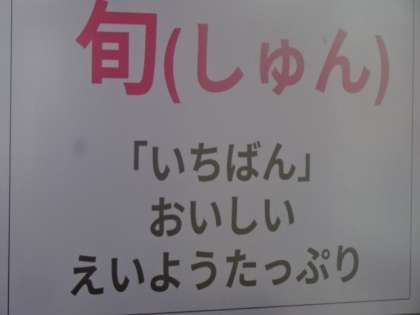 旬(しゅん)
「いちばん」
おいしい
えいようたっぷり